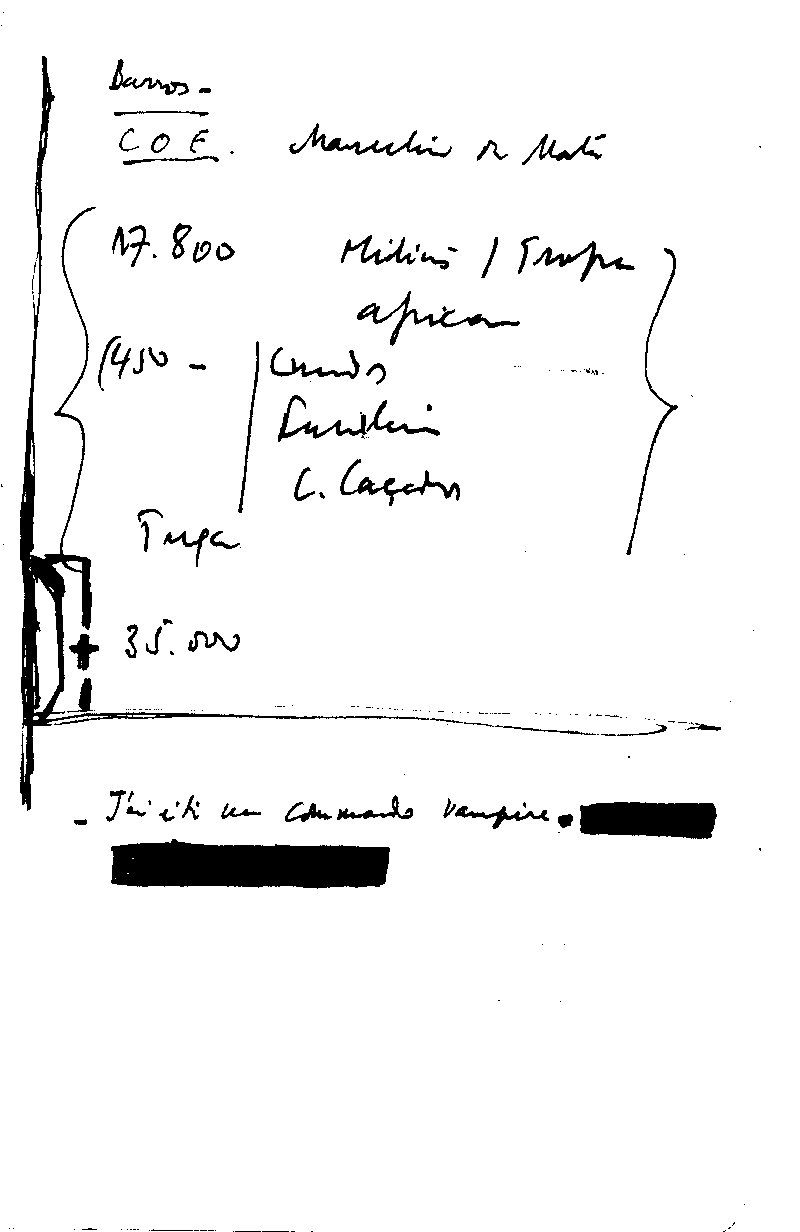 Barros -
C O E. Marcelino da Mata
17.800 Milícias / Tropa
africana
(450 - Comandos
Fuzileiros
C. Caçadores
Tropa
+ 35.000
- J'ai été un commando vampire.